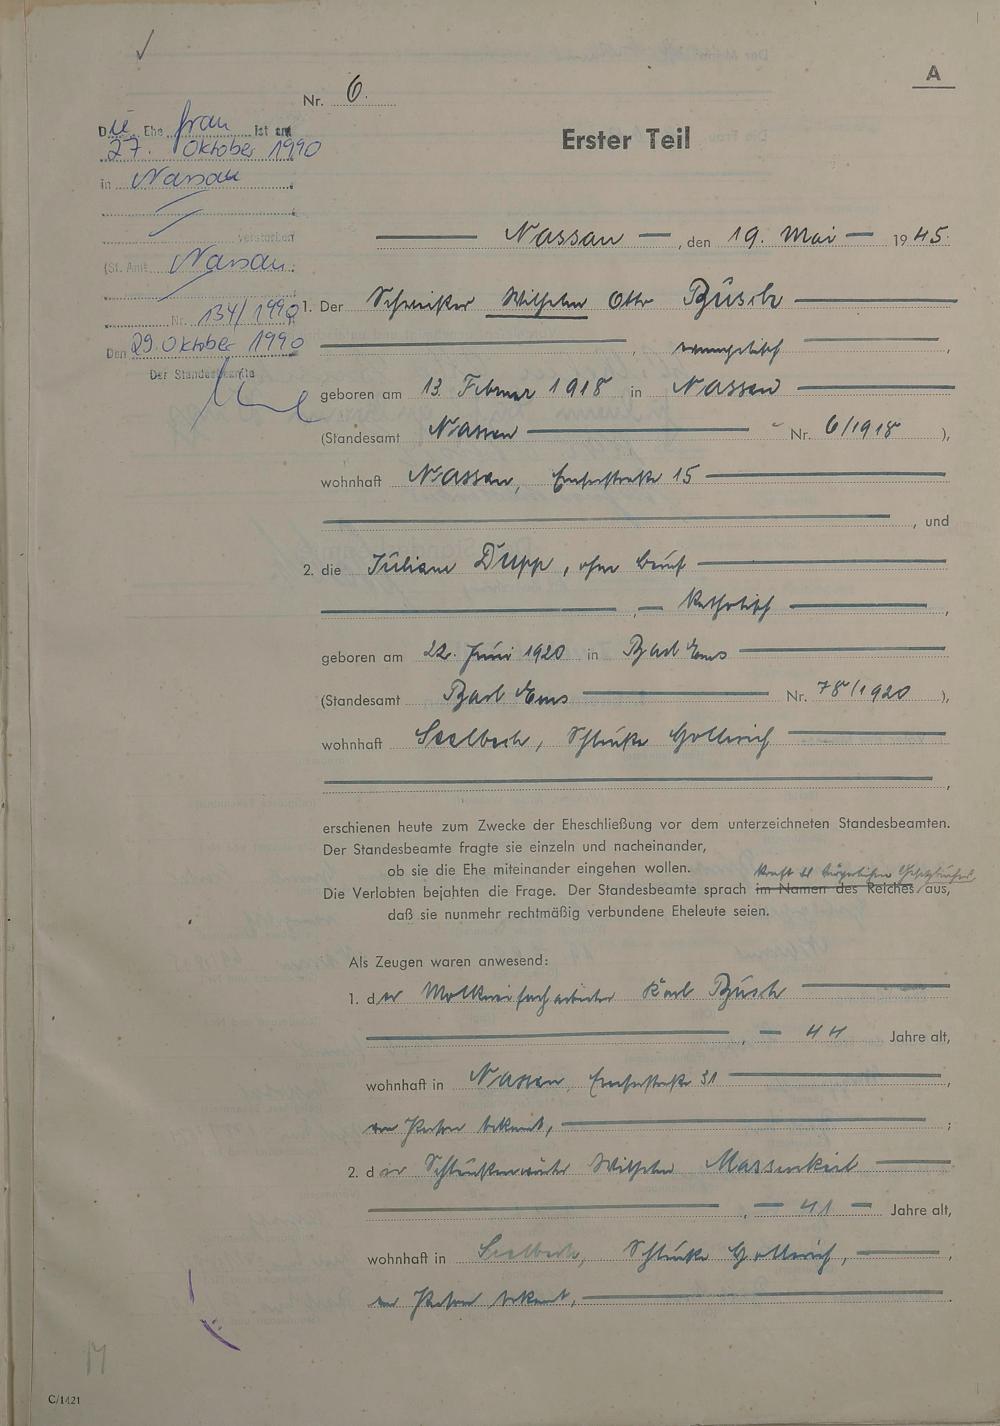 A
Nr. 6.
Erster Teil
Die Ehefrau ist am
27. Oktober 1990
in Nassau
verstorben
(St. Amt Nassau
Nr. 134/1990
Den 29. Oktober 1990
Der Standesbeamte
Nassau, den 19. Mai 1945.
1. Der Schreiner Wilhelm Otto Büsch
, evangelisch,
geboren am 13. Februar 1918 in Nassau
(Standesamt Nassau Nr. 6/1918),
wohnhaft Nassau, Emserstraße 15
, und
2. die Juliane Dupp, ohne Beruf
, katholisch,
geboren am 22. Juni 1920 in Bad Ems
(Standesamt Bad Ems Nr. 78/1920),
wohnhaft Seelbach, Schleuße Hollerich
,
erschienen heute zum Zwecke der Eheschließung vor dem unterzeichneten Standesbeamten.
Der Standesbeamte fragte sie einzeln und nacheinander,
ob sie die Ehe miteinander eingehen wollen.
kraft des bürgerlichen Gesetzbuches
Die Verlobten bejahten die Frage. Der Standesbeamte sprach im Namen des Reiches aus,
daß sie nunmehr rechtmäßig verbundene Eheleute seien.
Als Zeugen waren anwesend:
1. der Molkereifacharbeiter Karl Büsch
, 44 Jahre alt,
wohnhaft in Nassau, Emserstraße 31,
von Person bekannt,;
2. der Schleußenwärter Wilhelm Massenkeil
, 41 Jahre alt,
wohnhaft in Seelbach, Schleuße Hollerich,,
von Person bekannt,.
14
C/1421